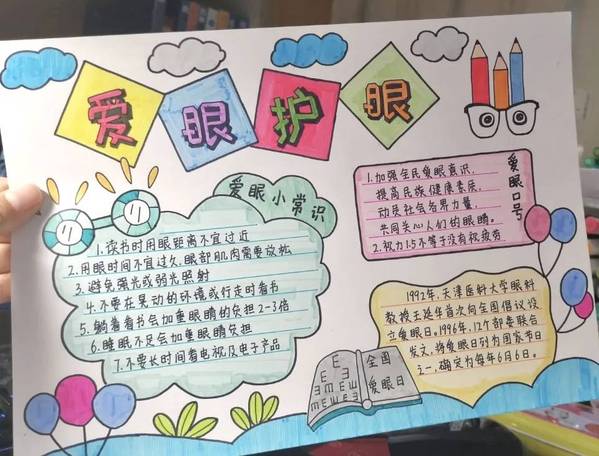 爱眼护眼
爱眼小常识
1.读书时用眼距离不宜过近
2.用眼时间不宜过久,眼部肌肉需要放松
3.避免强光或弱光照射
4.不要在晃动的环境或行走时看书
5.躺着看书会加重眼睛的负担2-3倍
6.睡眠不足会加重眼睛负担
7.不要长时间看电视及电子产品
爱眼口号
1.加强全民爱眼意识.
提高民族健康素质.
动员社会各界力量.
共同关心人们的眼睛。
2.视力1.5不等于没有视疲劳
1992年,天津医科大学眼科
教授王延华首次向全国倡议设
立爱眼日。1996年,12个部委联合
发文,将爱眼日列为国家节日
之一,确定为每年6月6日。
全国
爱眼日